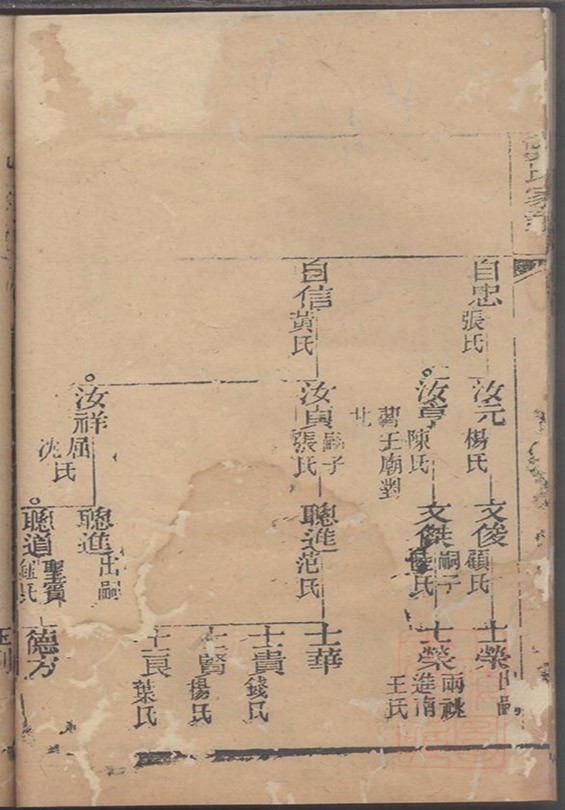 自忠
張氏
汝元
楊氏
文俊
顧氏
士榮
出嗣
汝亨
陳氏
文傑
嗣子
氏
士榮
兩祧
進南
王氏
自信
黃氏
汝貞
嗣子
張氏
聰進
范氏
士華
士貴
錢氏
士賢
楊氏
士良
葉氏
汝祥
屈氏
沈
聰進
出嗣
聰道
聖寶
氏
德方